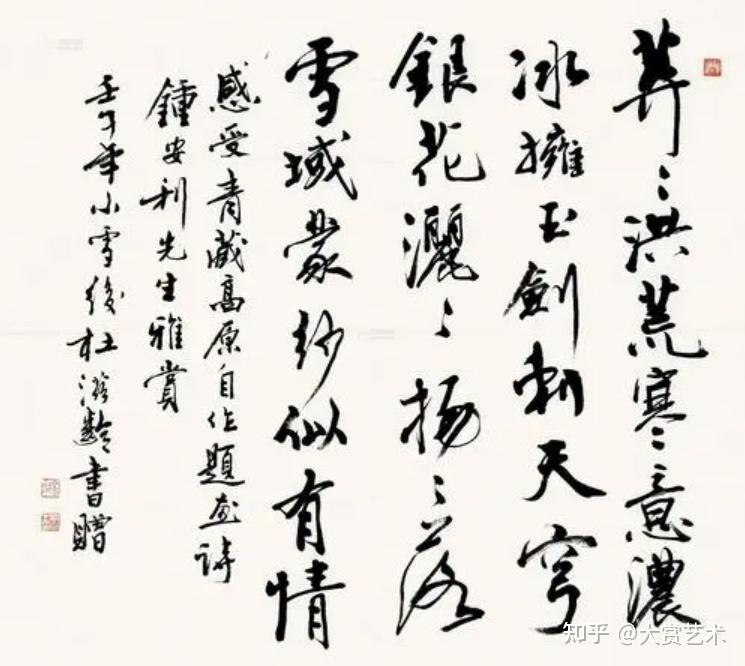 莽〻洪荒寒意濃
冰擁玉劍刺天穹
銀花灑〻揚〻落
雪域蒙紗似有情
感受青藏高原自作題画詩
鍾安利先生雅賞
壬午年小雪後杜滋齡書贈
知乎 @大赏艺术